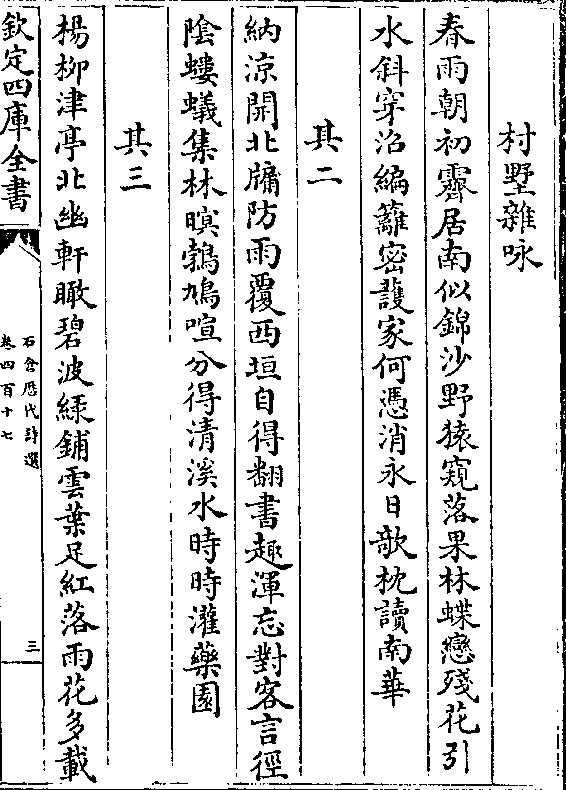 村墅雜咏
春雨朝初霽居南似錦沙野猿窺落果林蝶戀殘花引
水斜穿沼編籬密護家何憑消永日欹枕讀南華
其二
納涼開北牖防雨覆西垣自得翻書趣渾忘對客言徑
陰螻蟻集林暝鵓鳩喧分得清溪水時時灌藥園
其三
楊柳津亭北幽軒瞰碧波綠鋪雲葉足紅落雨花多載
欽定四庫全書
石倉歷代詩選
卷四百十七
三